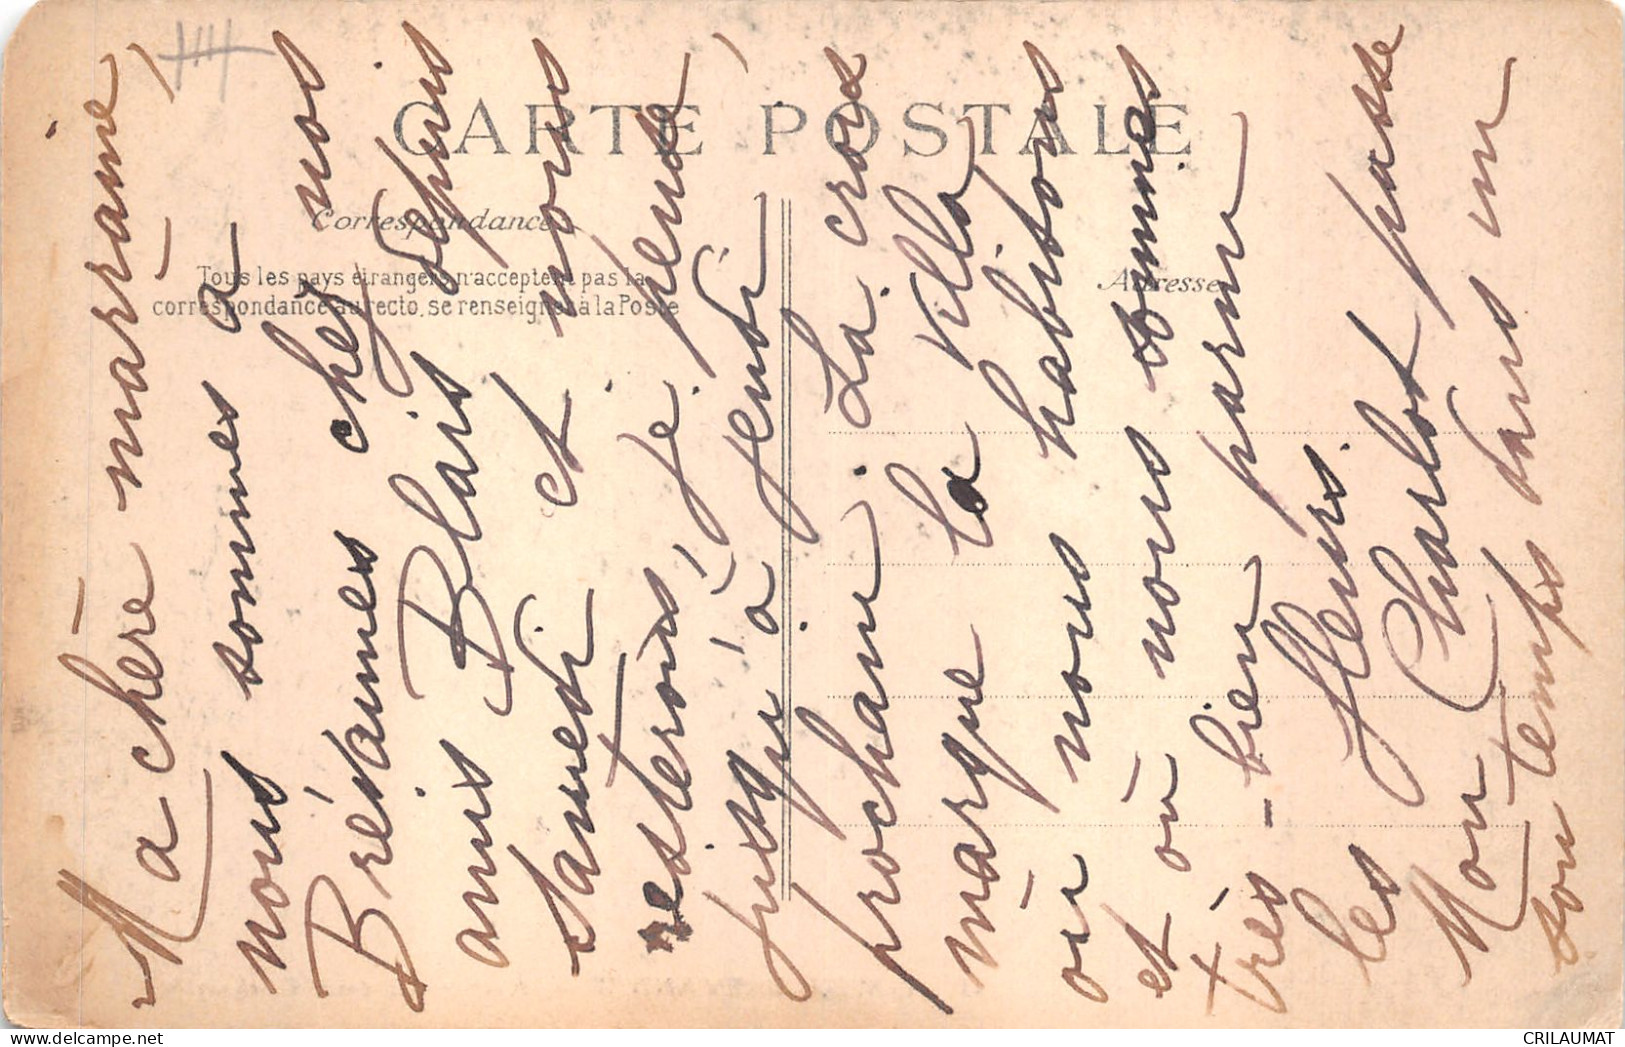 CARTE POSTALE
Correspondance
Tous les pays étrangers n'acceptent pas la
correspondance au recto, se renseigner à la Poste
Adresse
Ma chère marraine,
nous sommes à nos
Brésaimes chez nos
amis Blais depuis
Samedi et nous
resterons, je pense,
jusqu'à jeudi
prochain. La croix
marque la villa
où nous habitons
et où nous sommes
très-bien parmi
les fleurs.
Mon Charlot passe
son temps dans un
CRILAUMAT